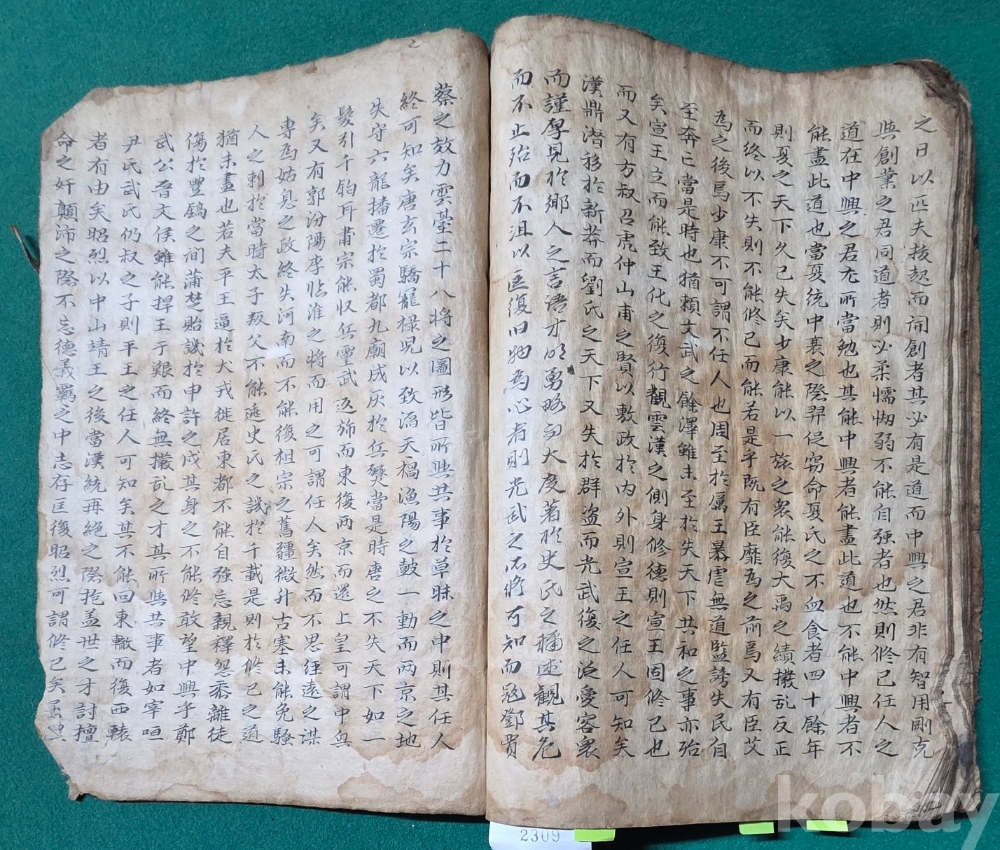 之日以匹夫挨起而開創者其必有是道而中興之君非有智用剛克
與創業之君同道者則必柔懦怯弱不能自强者也然則修已任人之
道在中興之君尤所當勉也其能中興者能盡此道也不能中興者不
能盡此道也當夏統中衰之際羿浞竊命夏氏之不血食者四十餘年
則夏之天下久已失矣少康能以一旅之衆能復大禹之績撥乱反正
而終以不失則不能修已而能若是乎既有臣靡為之前焉又有臣艾
為之後焉少康不可謂不任人也周至於厲王暴虐無道監謗失民自
至奔亡當是時也猶賴文武之餘澤雖未至於失天下共和之事亦殆
矣宣王立而能致王化之復行觀雲漢之側身修德則宣王固修已也
而又有方叔召虎仲山甫之賢以敷政於內外則宣王之任人可知矣
漢鼎潜移於新莽而劉氏之天下又失於群盗而光武復之泛愛容衆
而謹厚見於鄉人之言語才明勇略大度著於史氏之稱述觀其危
而不止殆而不沮以匡復旧物為心者則光武之修可知而冦鄧賈
蔡之效力雲臺二十八將之圖形皆所與共事於草昧之中則其任人
終可知矣唐玄宗驕寵祿兒以致滔天禍漁陽之皷一動而兩京之地
失守六龍播遷於蜀都九廟成灰於兵燹當是時唐之不失天下如一
髮引千鈞耳肅宗能收兵靈武返斾而東復兩京而還上皇可謂中興
矣又有郭汾陽李臨淮之將而用之可謂任人矣然而不思經遠之謀
專為姑息之政終失河南而不能復祖宗之舊疆微升古塞未能免騷
人之刺於當時太子叛父不能逃史氏之譏於千載是則於修已之道
猶未盡也若夫平王逼於犬戎徙居東都不能自强忘親釋怨黍離徒
傷於豐鎬之間蒲楚貽譏於申許之戍其身之不能修敢望中興乎鄭
武公晉文侯雖能捍王于艱而終無撥乱之才其所與共事者如宰咺
尹氏武氏仍叔之子則平王之任人可知矣其不能回東轍而復西轅
者有由矣昭烈以中山靖王之後當漢統再絕之際抱盖世之才討擅
命之奸顛沛之際不忘德義羈之中志存匡復昭烈可謂修已矣
2309
kobay